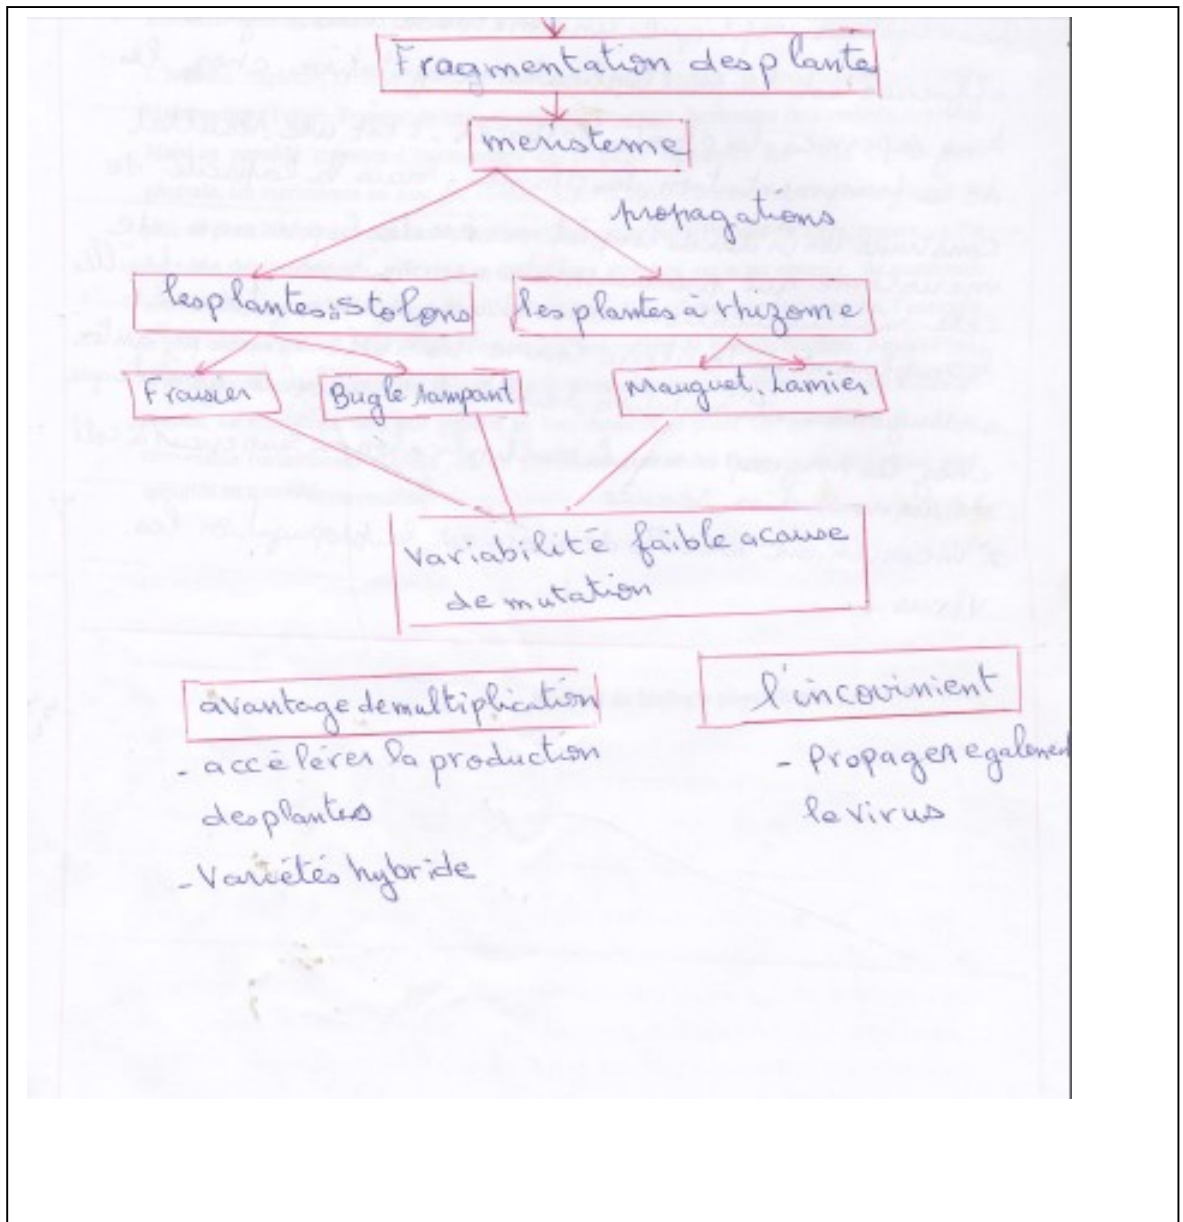 Fragmentation des plante
meristeme
propagations
les plantes à stolons
les plantes à rhizome
Fraisier
Bugle rampant
Muguet, Lamier
variabilité faible a cause
de mutation
avantage de multiplication
- accélérer la production
des plantes
- Variétés hybride
l'incovinient
- Propager egalement
le virus